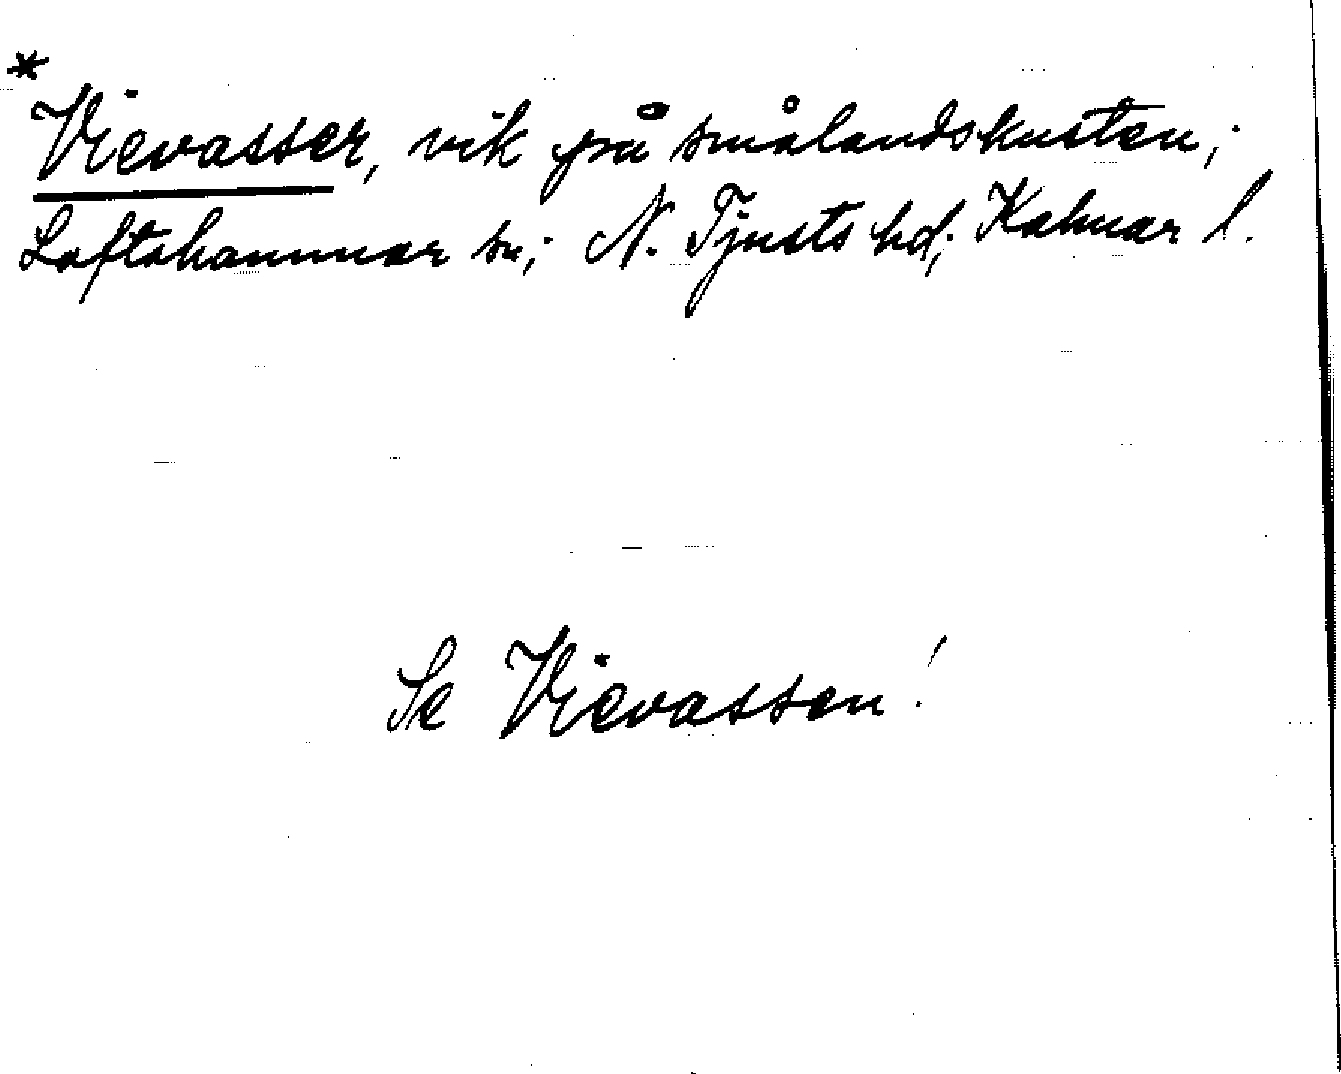 *
Vievasser, vik på smålandskusten;
Loftahammar sn; N. Tjusts hd; Kalmar l.
Se Vievassen!